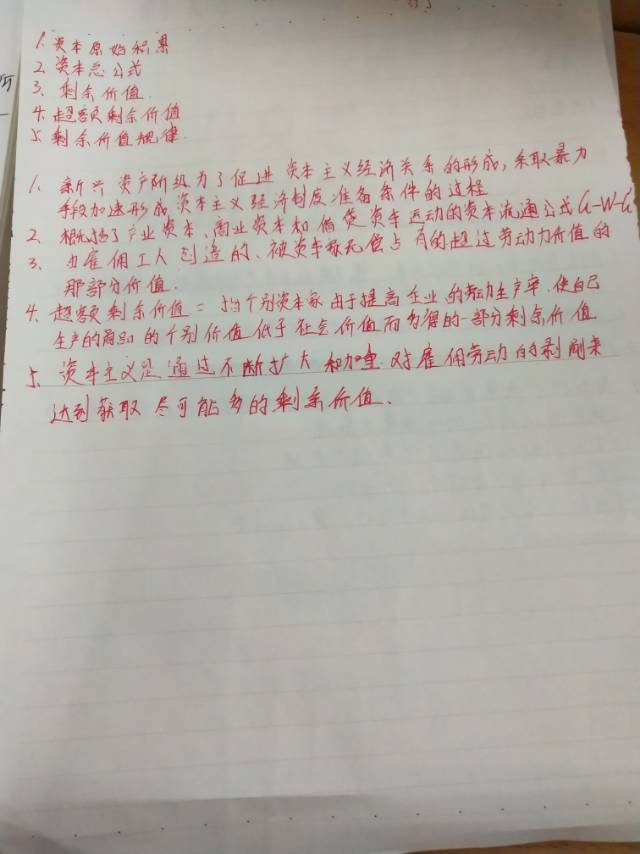 1. 资本原始积累
2. 资本总公式
3. 剩余价值.
4. 超额剩余价值
5. 剩余价值规律.
1. 新兴资产阶级为了促进资本主义经济关系的形成,采取暴力
手段加速形成资本主义经济制度准备条件的过程
2. 概括了产业资本、商业资本和借贷资本运动的资本流通公式G-W-G
3. 由雇佣工人创造的、被资本家无偿占有的超过劳动力价值的
那部分价值.
4. 超额剩余价值= 个别资本家由于提高企业的劳动生产率.使自己
生产的商品的个别价值低于社会价值而多得的一部分剩余价值
5. 资本主义是通过不断扩大和加重.对雇佣劳动的剥削来
达到获取尽可能多的剩余价值.